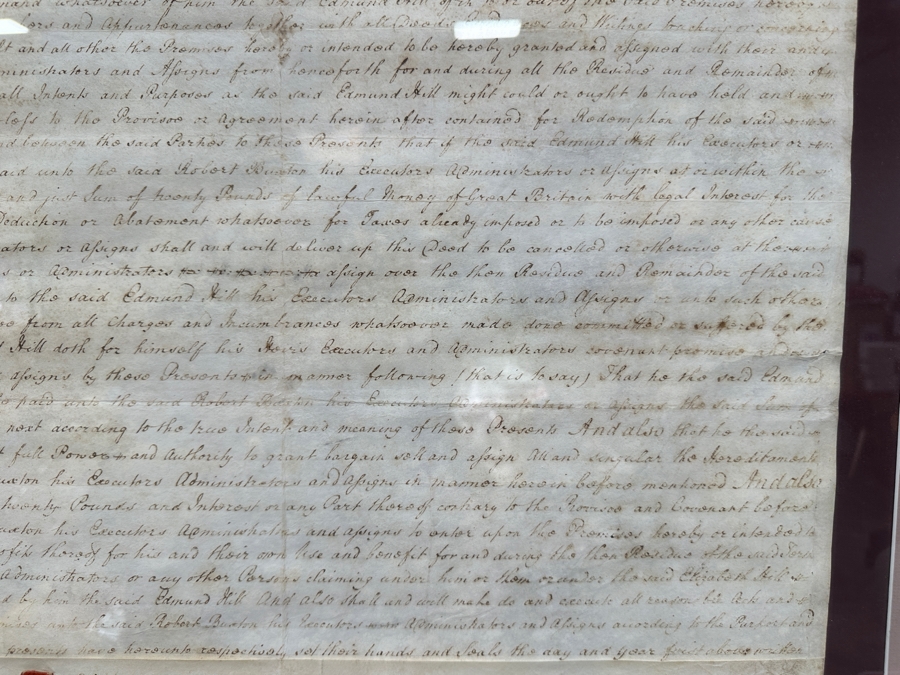 whatsoever of him the said Edmund Hill of in or out of the said Premises hereby
and Appurtenances together with all Deeds and Writings touching or concerning
and all other the Premises hereby or intended to be hereby granted and assigned with their and
ministrators and Assigns from henceforth for and during all the Residue and Remainder of
all Intents and Purposes as the said Edmund Hill might could or ought to have held and
less to the Provisoe or Agreement herein after contained for Redemption of the said
and between the said Parties to these Presents that if the said Edmund Hill his Executors or
aid unto the said Robert Buxton his Executors Administrators or Assigns at or within the
and just Sum of twenty Pounds of lawful Money of Great Britain with legal Interest for the
Deduction or Abatement whatsoever for Taxes already imposed or to be imposed or any other cause
ators or Assigns shall and will deliver up this Deed to be cancelled or otherwise at the
s or Administrators assign over the then Residue and Remainder of the said
to the said Edmund Hill his Executors Administrators and Assigns or unto such other
from all Charges and Incumbrances whatsoever made done committed or suffered by the
Hill doth for himself his Heirs Executors and Administrators covenant promise and
assigns by these Presents in manner following (that is to say) That he the said Edmund
paid unto the said Robert Buxton his Executors Administrators or Assigns the said Sum of
next according to the true Intent and meaning of these Presents And also that he the said
full Power and Authority to grant bargain sell and assign all and singular the Hereditaments
uxton his Executors Administrators and Assigns in manner herein before mentioned And also
twenty Pounds and Interest or any Part thereof contrary to the Provisoe and Covenant before
uxton his Executors Administrators and Assigns to enter upon the Premises hereby or intended to
ofits thereof for his and their own Use and benefit for and during the then Residue of the said Term
Administrators or any other Persons claiming under him or them or under the said Elizabeth Hill
d by him the said Edmund Hill And also shall and will make do and execute all reasonable Acts and
unto the said Robert Buxton his Executors Administrators and Assigns according to the Purport and
presents have hereunto respectively set their hands and Seals the day and year first above written